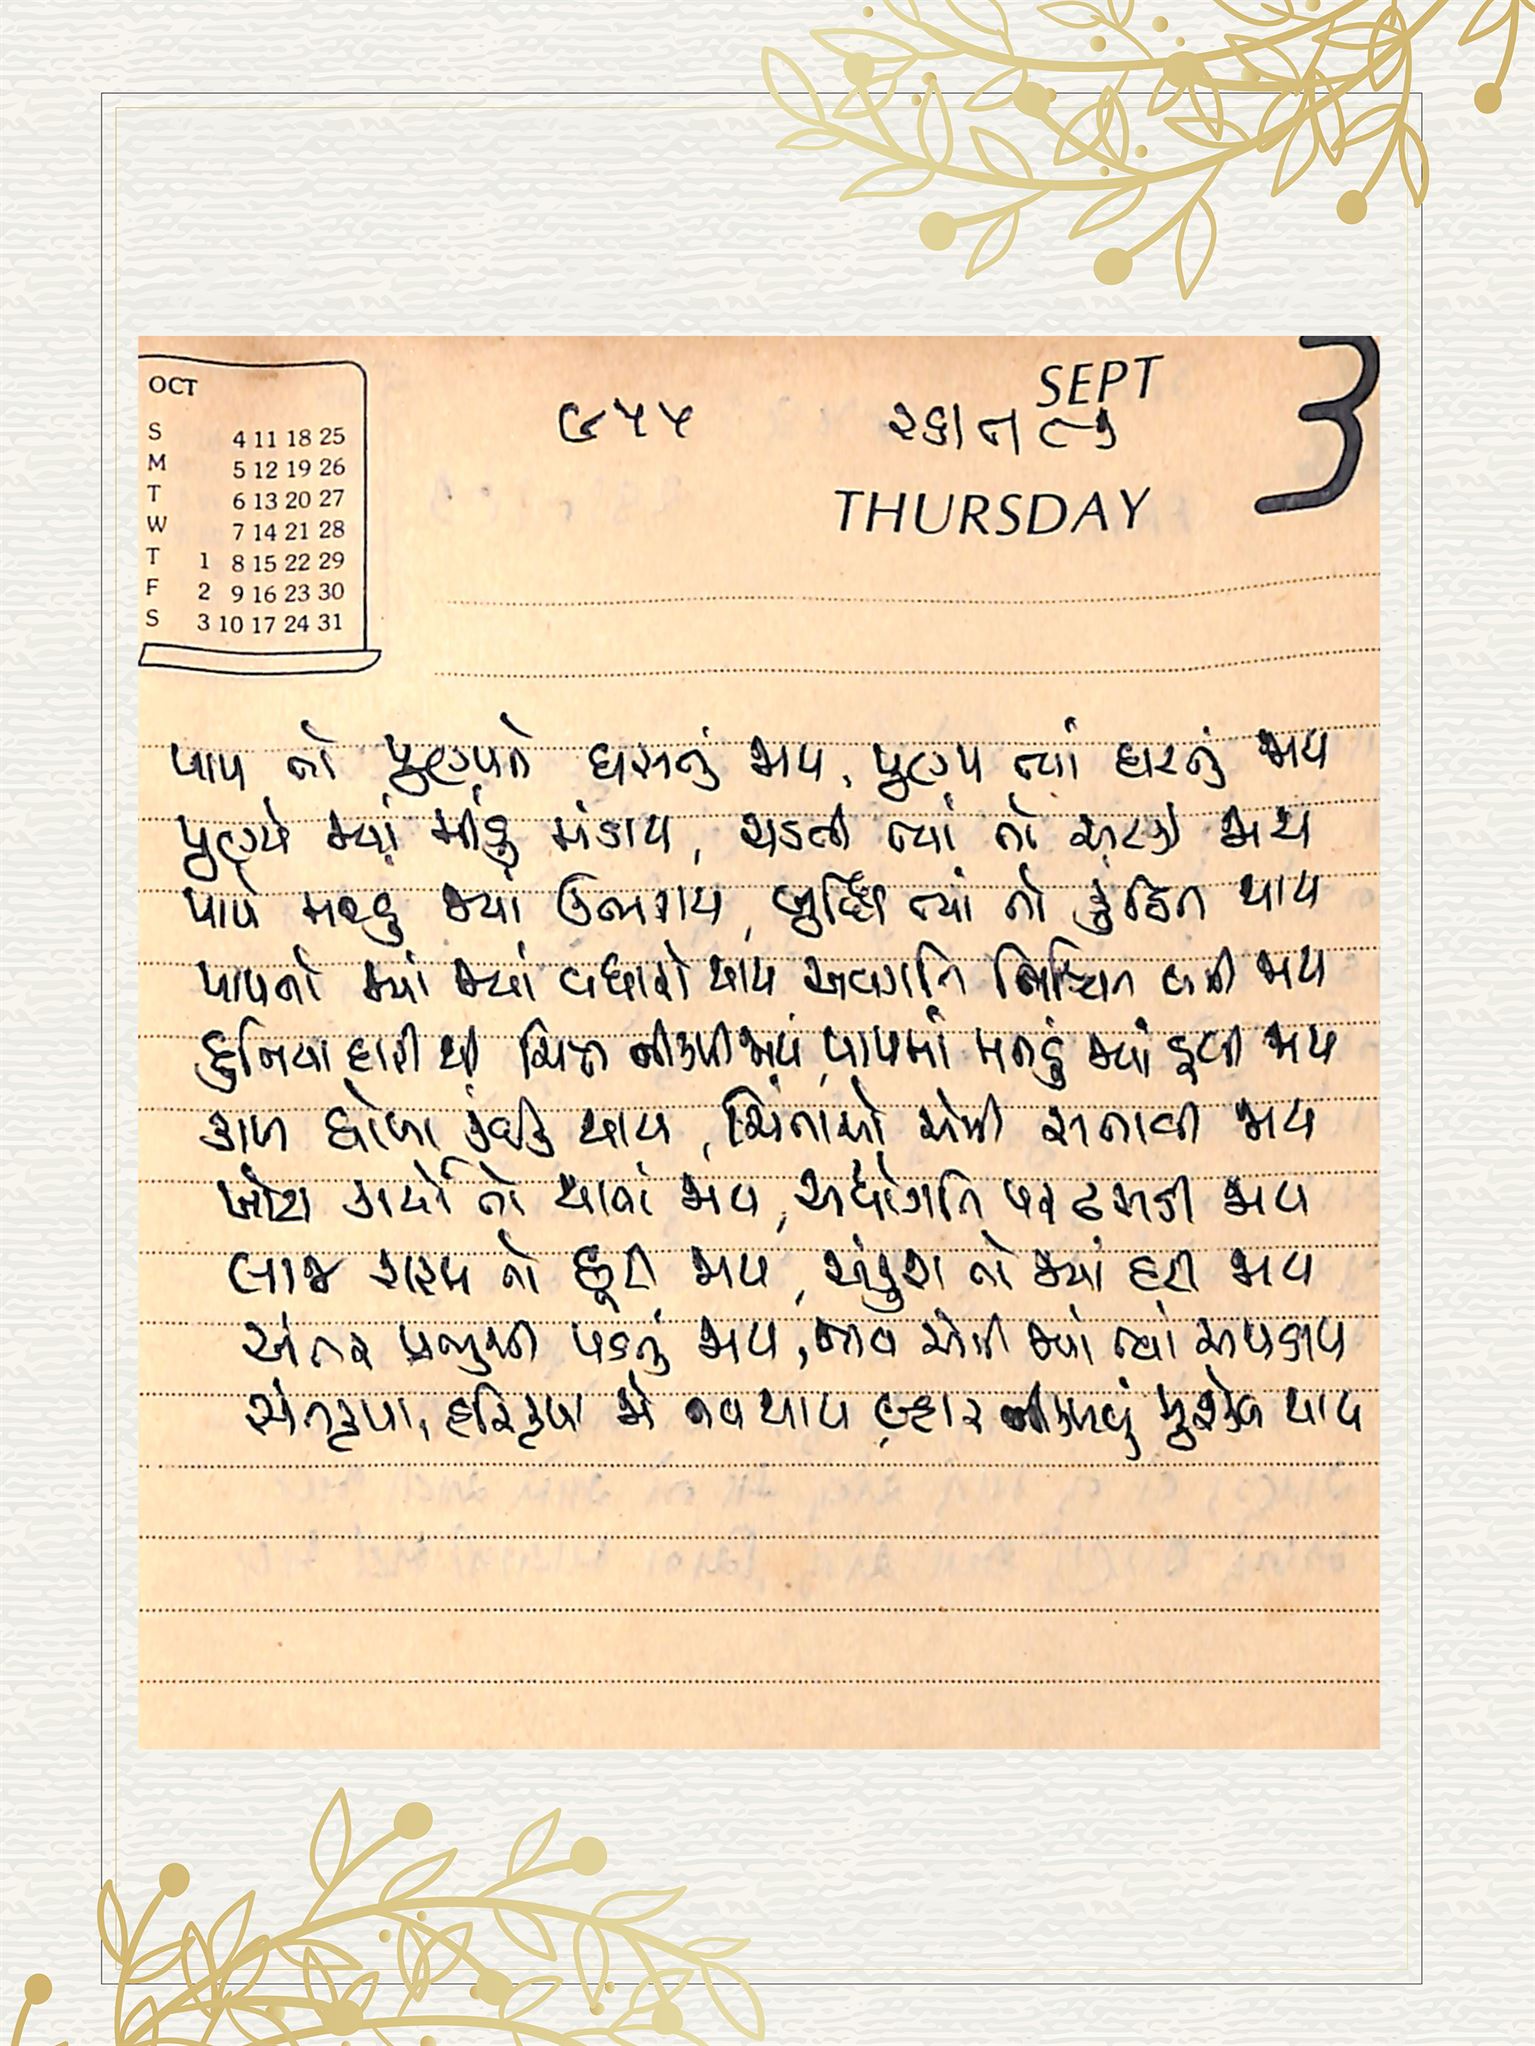 OCT
S 4 11 18 25
M 5 12 19 26
T 6 13 20 27
W 7 14 21 28
T 1 8 15 22 29
F 2 9 16 23 30
S 3 10 17 24 31
SEPT 3
૯૫૫
THURSDAY
પાપ તો પુણ્યને ઘસતું જાય, પુણ્ય ત્યાં હારતું જાય
પુણ્યે જ્યાં મીંડું મંડાય, ચડતી ત્યાં તો અટકી જાય
પાપે મનડું જ્યાં ઉભરાય, બુદ્ધિ ત્યાં તો કુંઠિત થાય
પાપનો જ્યાં જ્યાં વધારો થાય અવગતિ નિશ્ચિત બની જાય
દુનિયાદારી થી ચિત્ત નીકળી જાય, પાપમાં મનડું જ્યાં ડૂબી જાય
કાળા ધોળા કંઈક થાય, ચિંતાઓ એની સતાવી જાય
ખોટા કાર્યો તો થાતાં જાય, અધોગતિ પર ઢસડી જાય
લાજ શરમ તો છૂટી જાય, અંકુશ તો જ્યાં હટી જાય
અંતર પ્રભુથી પડતું જાય, નાવ એની જ્યાં ત્યાં અથડાય
સંતકૃપા, હરિકૃપા જો નવ થાય બહાર નીકળવું મુશ્કેલ થાય